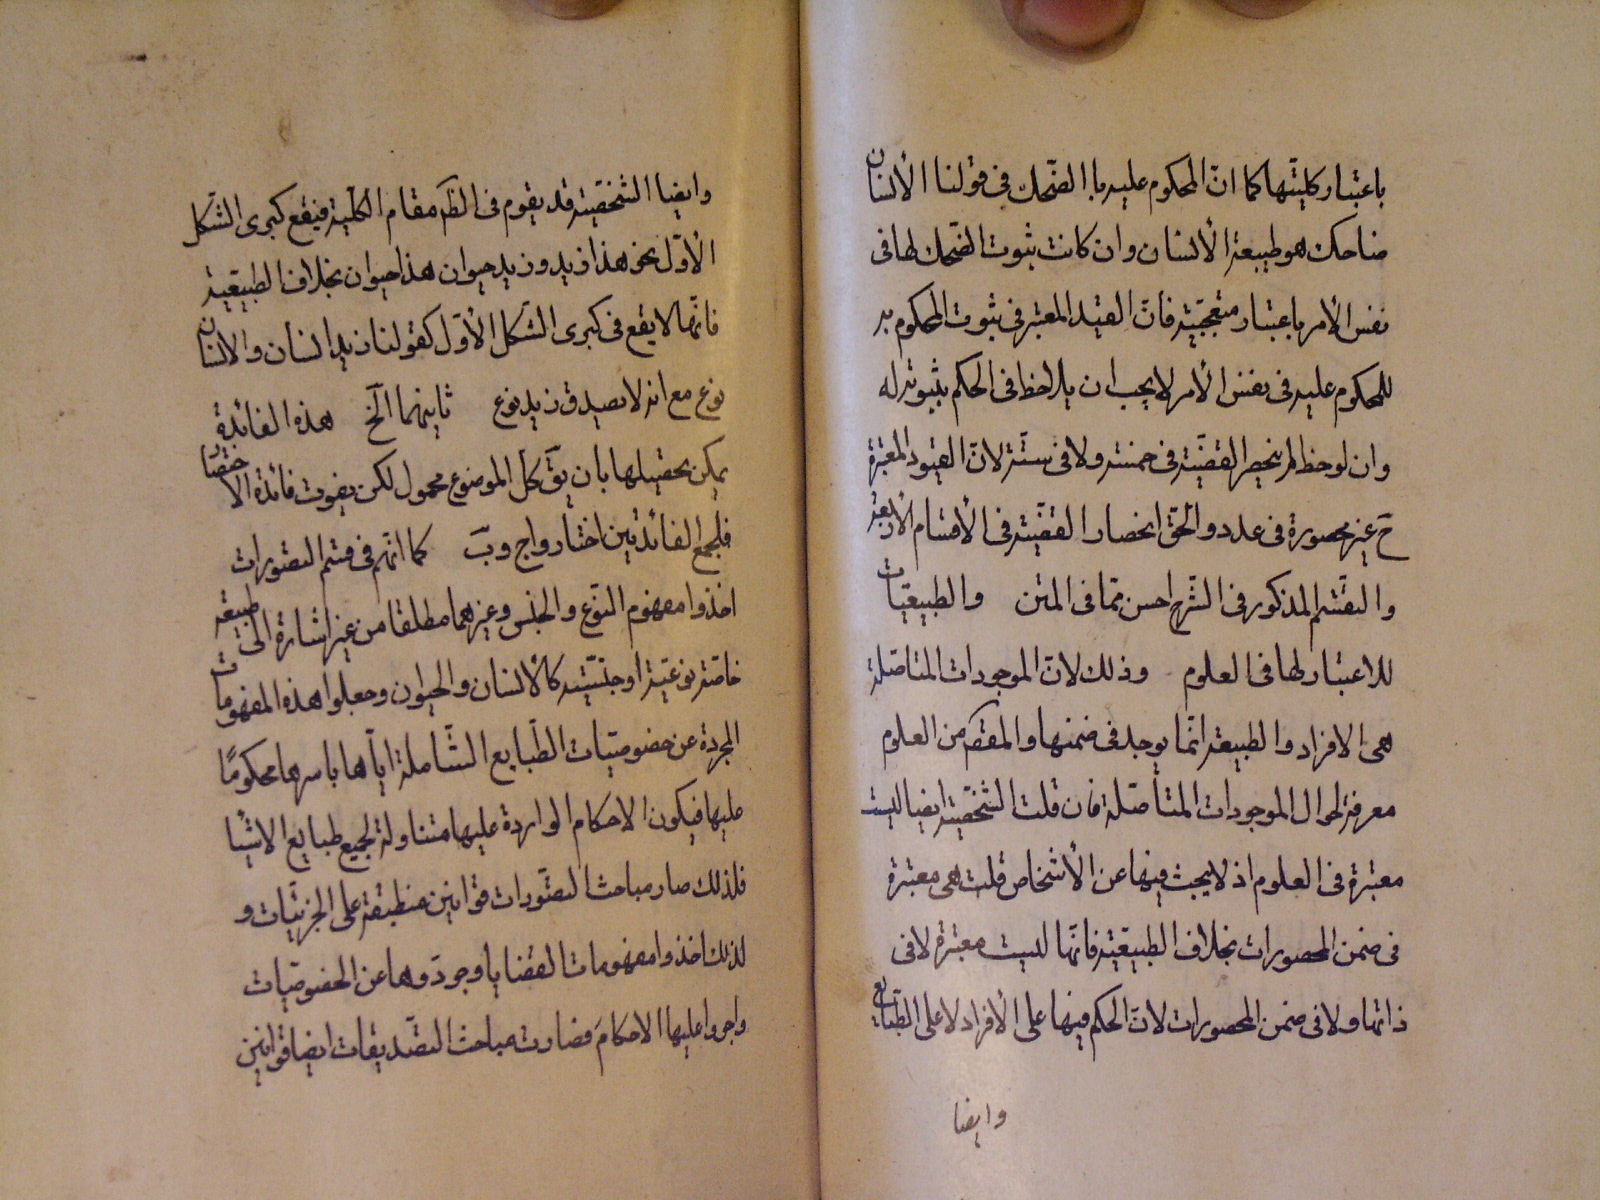 باعتبار كليتها كما انّ المحكوم عليه بالضّحك فى قولنا الأنسان
ضاحك هو طبيعة الأنسان وان كانت ثبوت الضّحك لها فى
نفس الأمر باعتبار متعجّبيّته فانّ القيد المعتبر فى ثبوت المحكوم به
للمحكوم عليه فى نفس الأمر لا يجب ان يلاحظ فى الحكم بثبوته له
وان لوحظ لم ينحصر القضيّة فى خمسة ولا فى ستّة لانّ القيود المعتبرة
ح غير محصورة فى عدد والحقّ انحصار القضيّة فى الأقسام الأربعة
والتقسّم المذكور فى الشّرح احسن ممّا فى المتن والطبيعيّات
للاعتبار لها فى العلوم وذلك لانّ الموجودات المتاصّلة
هى الافراد والطبيعة انّما يوجد فى ضمنها والمقصم من العلوم
معرفة احوال الموجودات المتأصّلة فان قلت الشّخصيّة ايضا ليست
معتبرة فى العلوم اذ لا يبحث فيها عن الأشخاص قلت هى معتبرة
فى ضمن المحصورات بخلاف الطبيعيّة فانّها ليست معتبرة لا فى
ذاتها ولا فى ضمن المحصورات لانّ الحكم فيها على الأفراد لا على الطّبايع
وايضا
وايضا الشّخصيّة قد يقوم فى الظّم مقام الكلّية فيقع كبرى الشّكل
الأوّل نحو هذا زيد وزيد حيوان هذا حيوان بخلاف الطبيعيّة
فانّها لا يقع فى كبرى الشّكل الأوّل كقولنا زيد انسان والانسان
نوع مع انه لا يصدق زيد نوع ثانيهما الخ هذه الفائدة
يمكن تحصيلها بان يقّ كلّ الموضوع محمول لكن يفوت فائدة الاختصار
فلجمع الفائدتين اختار واج وبّ كما انّهم فى قسم التصوّرات
اخذوا مفهوم النّوع والجنس وغيرهما مطلقا من غير اشارة الى طبيعة
خاصّة نوعيّة او جنسيّة كالأنسان والحيوان وجعلوا هذه المفهومات
المجردة عن خصوصيّات الطّبايع الشّاملة ايّاها باسرها محكومًا
عليها فيكون الاحكام الواردة عليها متناولة لجميع طبايع الاشيا
فلذلك صار مباحث التصّورات قوانين منطبقة على الجزئيّات و
لذلك اخذوا مفهومات القضايا وجرّدوها عن الخصوصيّات
واجروا عليها الاحكام فصارت مباحث التصّديقات ايضا قوانين